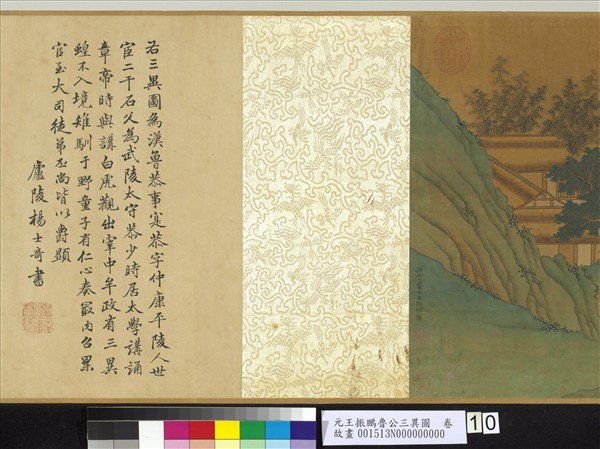 右三異圖為漢魯恭事寔恭字仲康平陵人世
官二千石父為武陵太守恭少時居太學講誦
章帝時與講白虎觀出宰中牟政有三異
蝗不入境雉馴于野童子有仁心奏最內召累
官至大司徒弟丕尚皆以爵顯
廬陵楊士奇書
元王振鵬魯公三異圖 卷
故畫 001513N000000000
10